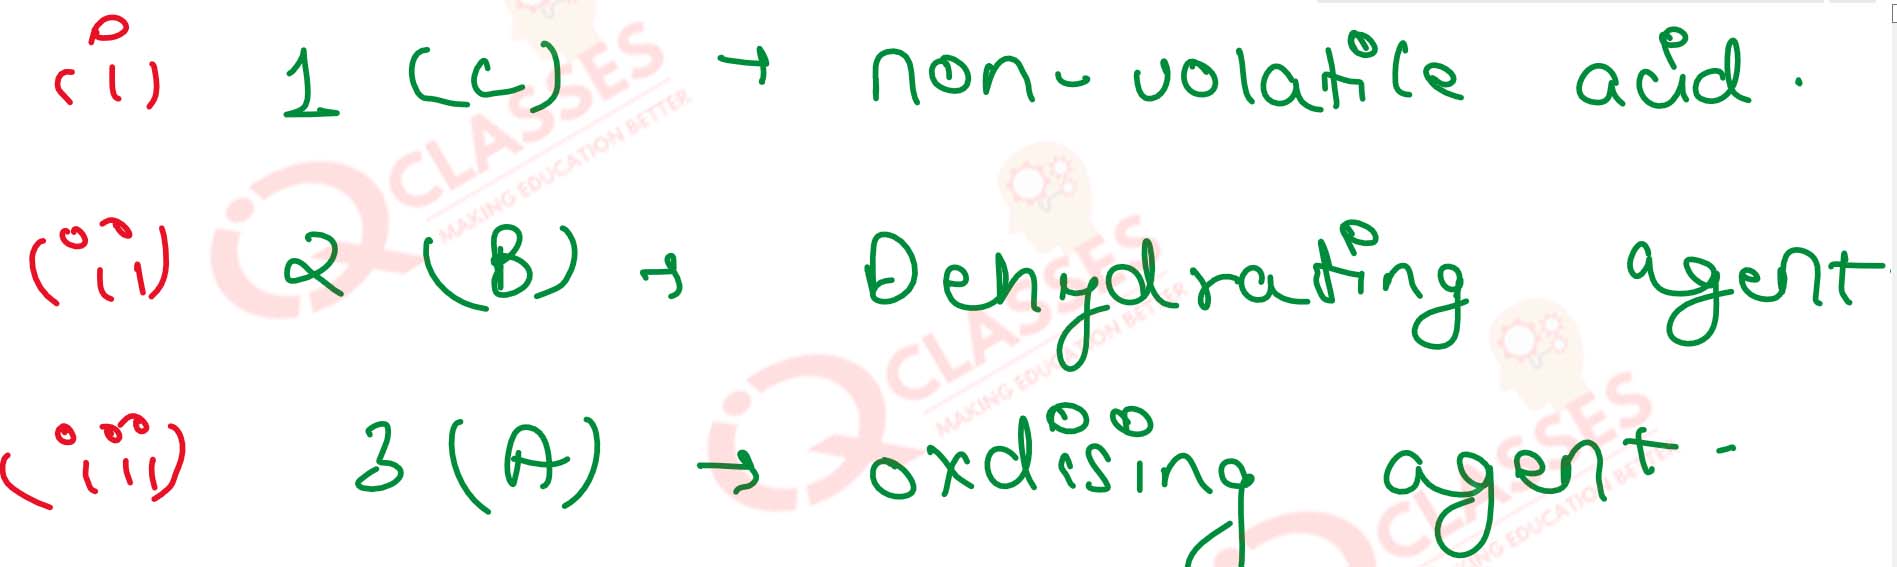 (i) 1 (C) → non-volatile acid.
(ii) 2 (B) → Dehydrating agent
(iii) 3 (A) → oxdising agent.
iQ CLASSES
MAKING EDUCATION BETTER
iQ CLASSES
MAKING EDUCATION BETTER
CLASSES